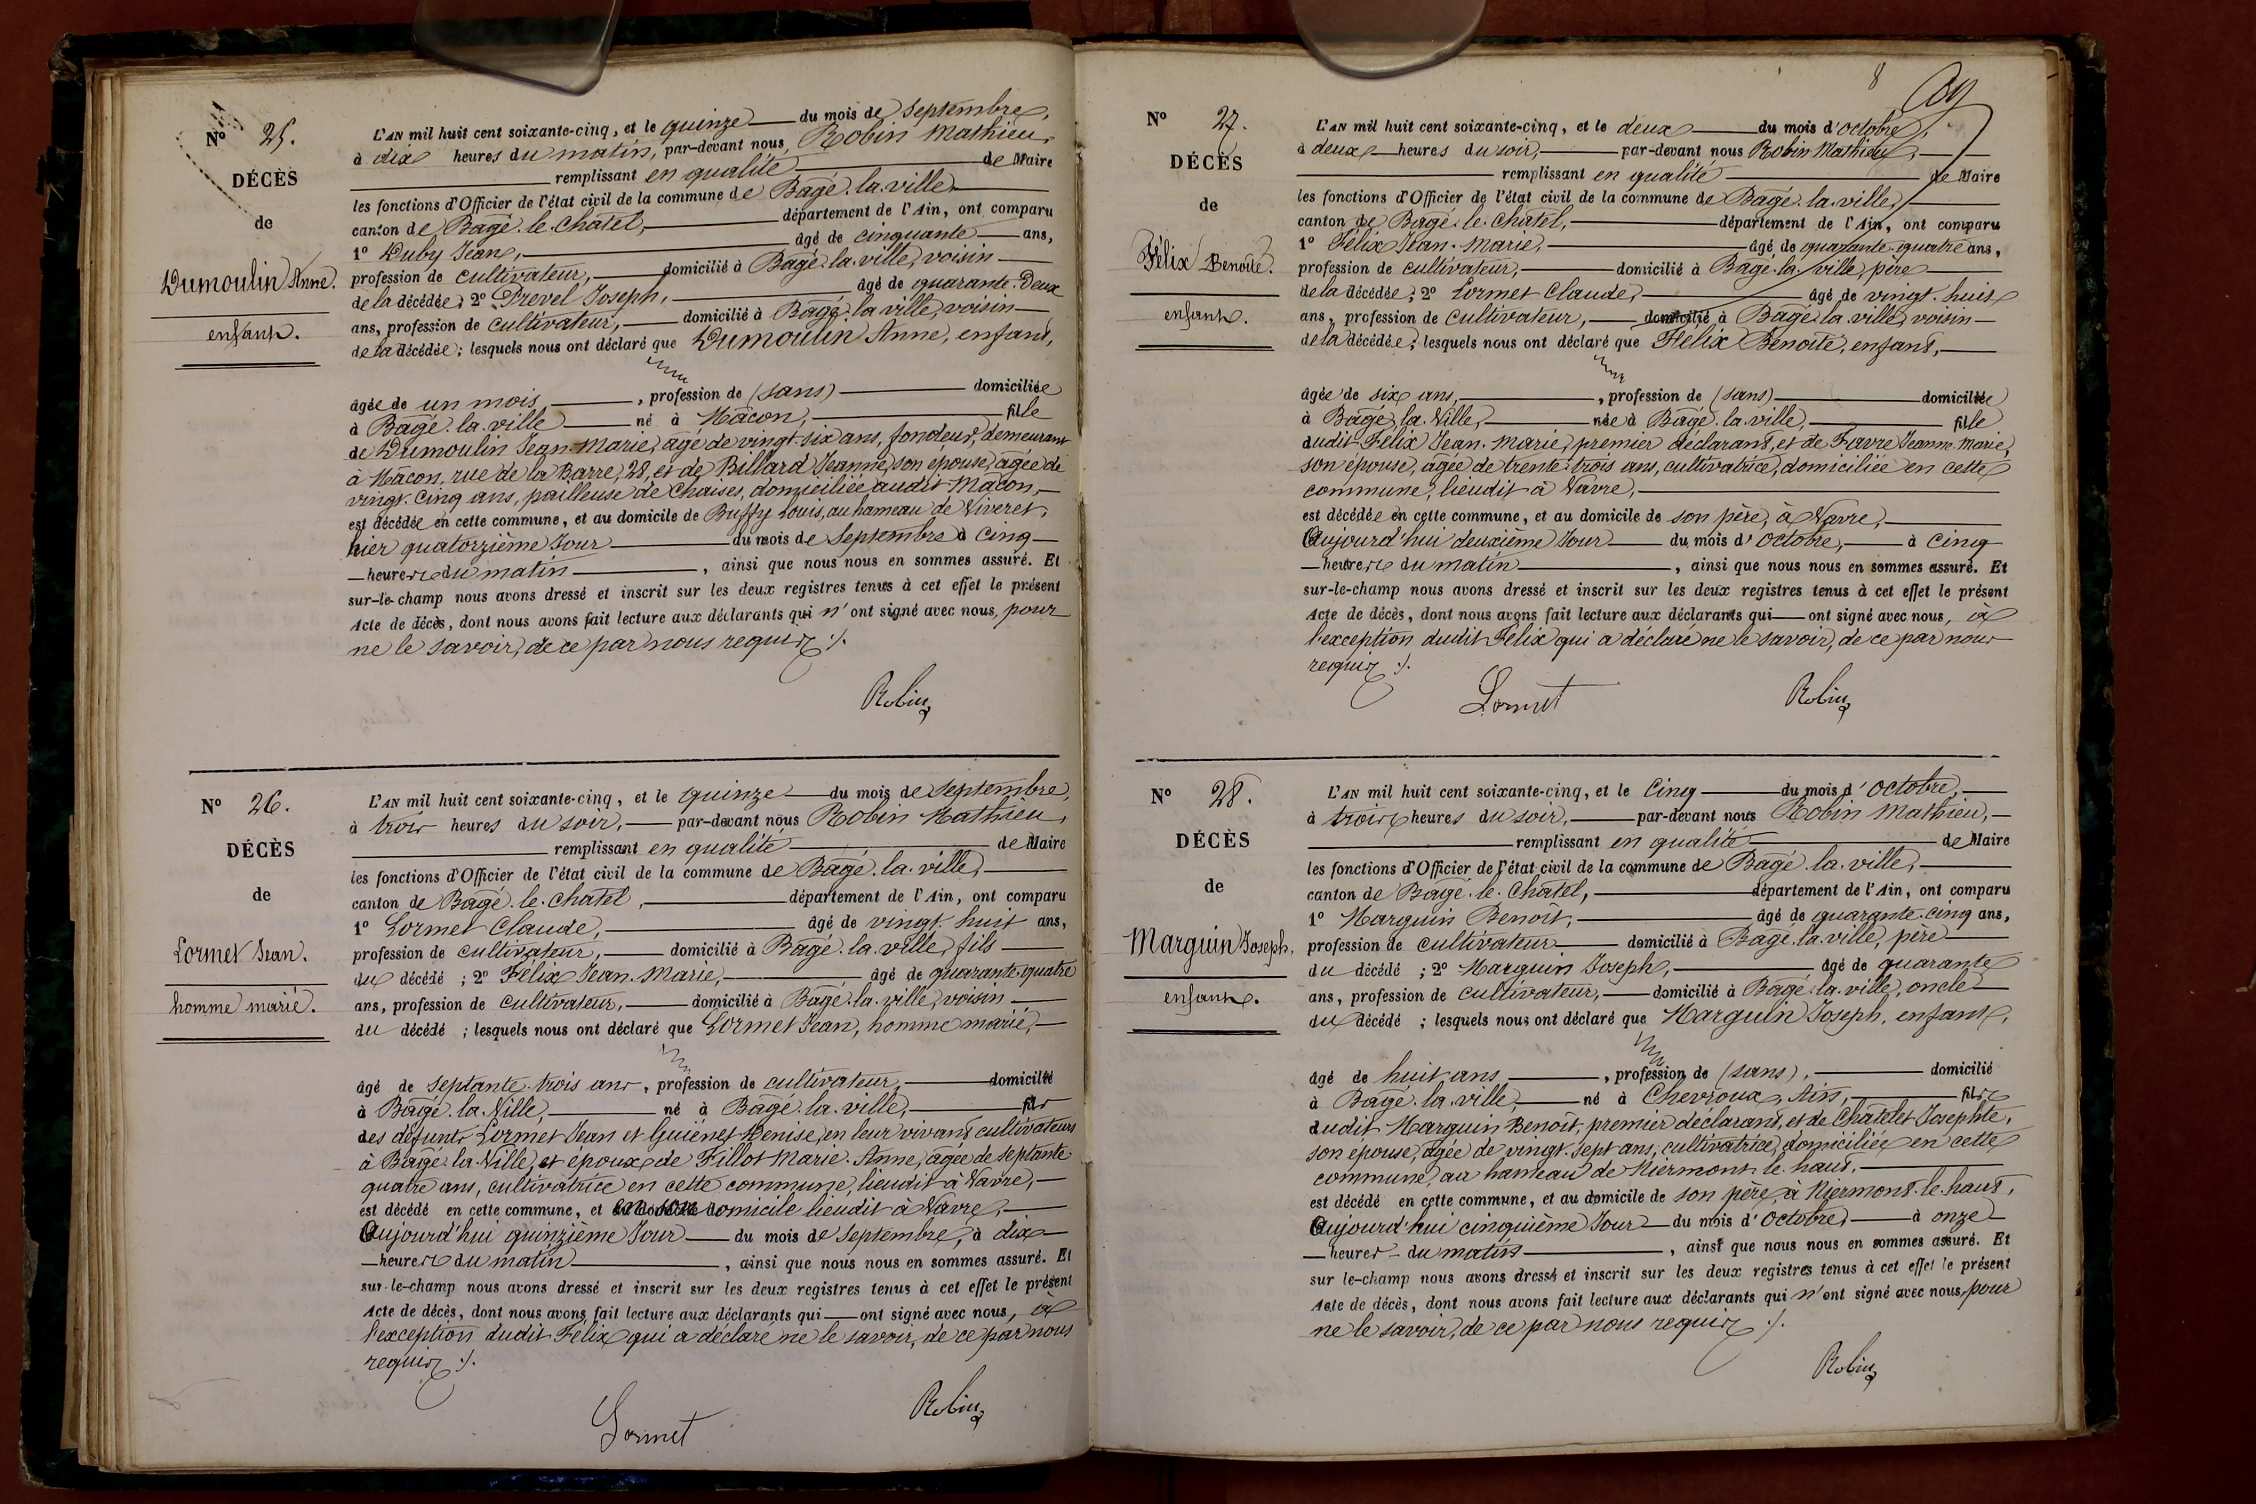 N° 25.
DÉCÈS
de
Dumoulin Anne.
enfant.
L'AN mil huit cent soixante-cinq, et le quinze du mois de Septembre,
à dix heures du matin, par-devant nous, Robin Mathieu,
remplissant en qualité de Maire
les fonctions d'Officier de l'état civil de la commune de Bagé-la-ville
canton de Bagé-le-Châtel, département de l'Ain, ont comparu
1° Duby Jean, âgé de cinquante ans,
profession de cultivateur, domicilié à Bagé-la-ville, voisin
de la décédée; 2° Prevel Joseph, âgé de quarante-Deux
ans, profession de cultivateur, domicilié à Bagé-la-ville, voisin
de la décédée; lesquels nous ont déclaré que Dumoulin Anne, enfant,
âgée de un mois, profession de (sans) domiciliée
à Bagé-la-ville né à Mâcon, fille
de Dumoulin Jean-Marie, âgé de vingt-six ans, fondeur, demeurant
à Mâcon, rue de la Barre, 28, et de Billard Jeanne, son épouse, âgée de
vingt-cinq ans, pailleuse de chaises, domiciliée audit Mâcon,
est décédée en cette commune, et au domicile de Buffy Louis, au hameau de Viveret,
hier quatorzième Jour du mois de Septembre à cinq
heures du matin, ainsi que nous nous en sommes assuré. Et
sur-le-champ nous avons dressé et inscrit sur les deux registres tenus à cet effet le présent
Acte de décès, dont nous avons fait lecture aux déclarants qui n'ont signé avec nous, pour
ne le savoir, de ce par nous requis ./.
Robin
N° 26.
DÉCÈS
de
Lormet Jean.
homme marié.
L'AN mil huit cent soixante-cinq, et le quinze du mois de Septembre,
à trois heures du soir, par-devant nous Robin Mathieu,
remplissant en qualité de Maire
les fonctions d'Officier de l'état civil de la commune de Bagé-la-ville,
canton de Bagé-le-Châtel, département de l'Ain, ont comparu
1° Lormet Claude, âgé de vingt-huit ans,
profession de cultivateur, domicilié à Bagé-la-ville, fils
du décédé; 2° Félix Jean-Marie, âgé de quarante-quatre
ans, profession de cultivateur, domicilié à Bagé-la-ville, voisin
du décédé; lesquels nous ont déclaré que Lormet Jean, homme marié,
âgé de septante-trois ans, profession de cultivateur, domicilié
à Bagé-la-Ville, né à Bagé-la-ville, fils
des défunts Lormet Jean et Guiénet Denise, en leur vivant cultivateurs
à Bagé-la-Ville, et époux de Fillot Marie-Anne, âgée de septante
quatre ans, cultivatrice en cette commune, lieudit à Navre,
est décédé en cette commune, et en son domicile lieudit à Navre,
Aujourd'hui quinzième Jour du mois de Septembre, à dix
heures du matin, ainsi que nous nous en sommes assuré. Et
sur-le-champ nous avons dressé et inscrit sur les deux registres tenus à cet effet le présent
Acte de décès, dont nous avons fait lecture aux déclarants qui ont signé avec nous, à
l'exception dudit Félix qui a déclaré ne le savoir, de ce par nous
requis ./.
Lormet Robin
8
N° 27.
DÉCÈS
de
Félix Benoite.
enfant.
L'AN mil huit cent soixante-cinq, et le deux du mois d'octobre,
à deux heures du soir, par-devant nous Robin Mathieu,
remplissant en qualité de Maire
les fonctions d'Officier de l'état civil de la commune de Bagé-la-ville,
canton de Bagé-le-Châtel, département de l'Ain, ont comparu
1° Félix Jean-Marie, âgé de quarante-quatre ans,
profession de cultivateur, domicilié à Bagé-la-ville, père
de la décédée; 2° Lormet Claude, âgé de vingt-huit
ans, profession de cultivateur, domicilié à Bagé-la-ville, voisin
de la décédée; lesquels nous ont déclaré que Félix Benoite, enfant,
âgée de six ans, profession de (sans) domiciliée
à Bagé-la-Ville, née à Bagé-la-ville, fille
dudit Félix Jean-Marie, premier déclarant, et de Favre Jeanne-Marie,
son épouse, âgée de trente-trois ans, cultivatrice, domiciliée en cette
commune, lieudit à Navre,
est décédée en cette commune, et au domicile de son père, à Navre,
Aujourd'hui deuxième Jour du mois d'octobre, à cinq
heures du matin, ainsi que nous nous en sommes assuré. Et
sur-le-champ nous avons dressé et inscrit sur les deux registres tenus à cet effet le présent
Acte de décès, dont nous avons fait lecture aux déclarants qui ont signé avec nous, à
l'exception dudit Félix qui a déclaré ne le savoir, de ce par nous
requis ./.
Lormet Robin
N° 28.
DÉCÈS
de
Marguin Joseph.
enfant.
L'AN mil huit cent soixante-cinq, et le Cinq du mois d'octobre,
à trois heures du soir, par-devant nous Robin Mathieu,
remplissant en qualité de Maire
les fonctions d'Officier de l'état civil de la commune de Bagé-la-ville,
canton de Bagé-le-Châtel, département de l'Ain, ont comparu
1° Marguin Benoît, âgé de quarante-cinq ans,
profession de cultivateur domicilié à Bagé-la-ville, père
du décédé; 2° Marguin Joseph, âgé de quarante
ans, profession de cultivateur, domicilié à Bagé-la-ville, oncle
du décédé; lesquels nous ont déclaré que Marguin Joseph, enfant,
âgé de huit ans, profession de (sans), domicilié
à Bagé-la-ville, né à Chevroux, Ain, fils
dudit Marguin Benoît, premier déclarant, et de Châtelet Josephte,
son épouse, âgée de vingt-sept ans, cultivatrice, domiciliée en cette
commune, au hameau de Niermont-le-haut,
est décédé en cette commune, et au domicile de son père, à Niermont-le-haut,
Aujourd'hui cinquième Jour du mois d'octobre, à onze
heures du matin, ainsi que nous nous en sommes assuré. Et
sur le-champ nous avons dressé et inscrit sur les deux registres tenus à cet effet le présent
Acte de décès, dont nous avons fait lecture aux déclarants qui n'ont signé avec nous, pour
ne le savoir, de ce par nous requis ./.
Robin